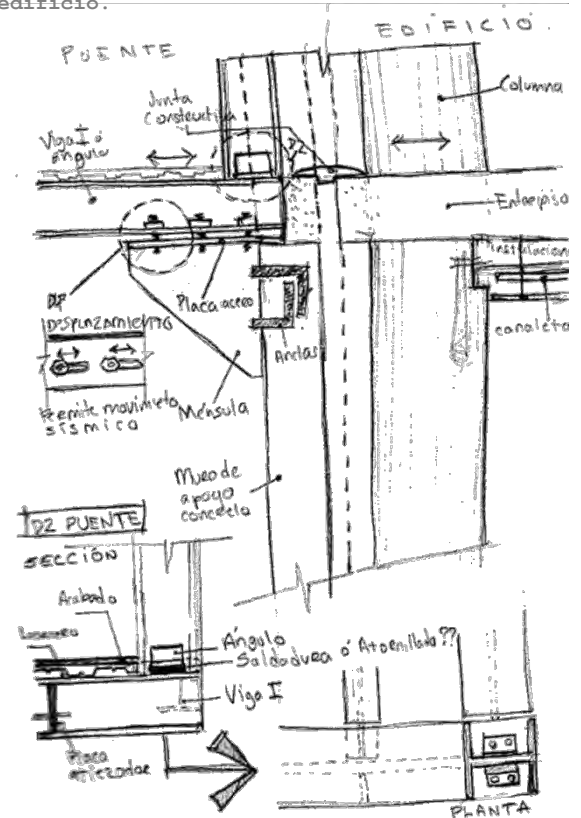 edificio.
PUENTE
EDIFICIO.
Junta
Constructiva
Columna
Viga I ó
ángulo
Entrepiso
Instalacion
canaleta
Placa acero
Anclas
DESPLAZAMIENTO
Permite movimieto
sísmico
Ménsula
Muro de
apoyo
concreto
D2 PUENTE
SECCIÓN
Acabado
Ángulo
Soldadura ó Atornillado??
Viga I
Placa
atiezador
PLANTA